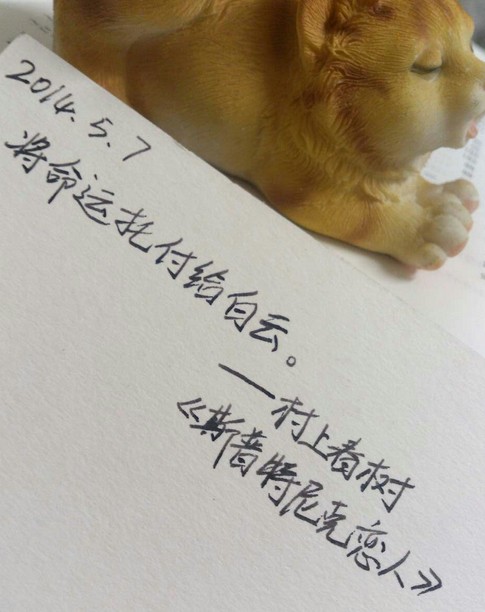 2014.5.7
将命运托付给白云。
——村上春树
《斯普特尼克恋人》